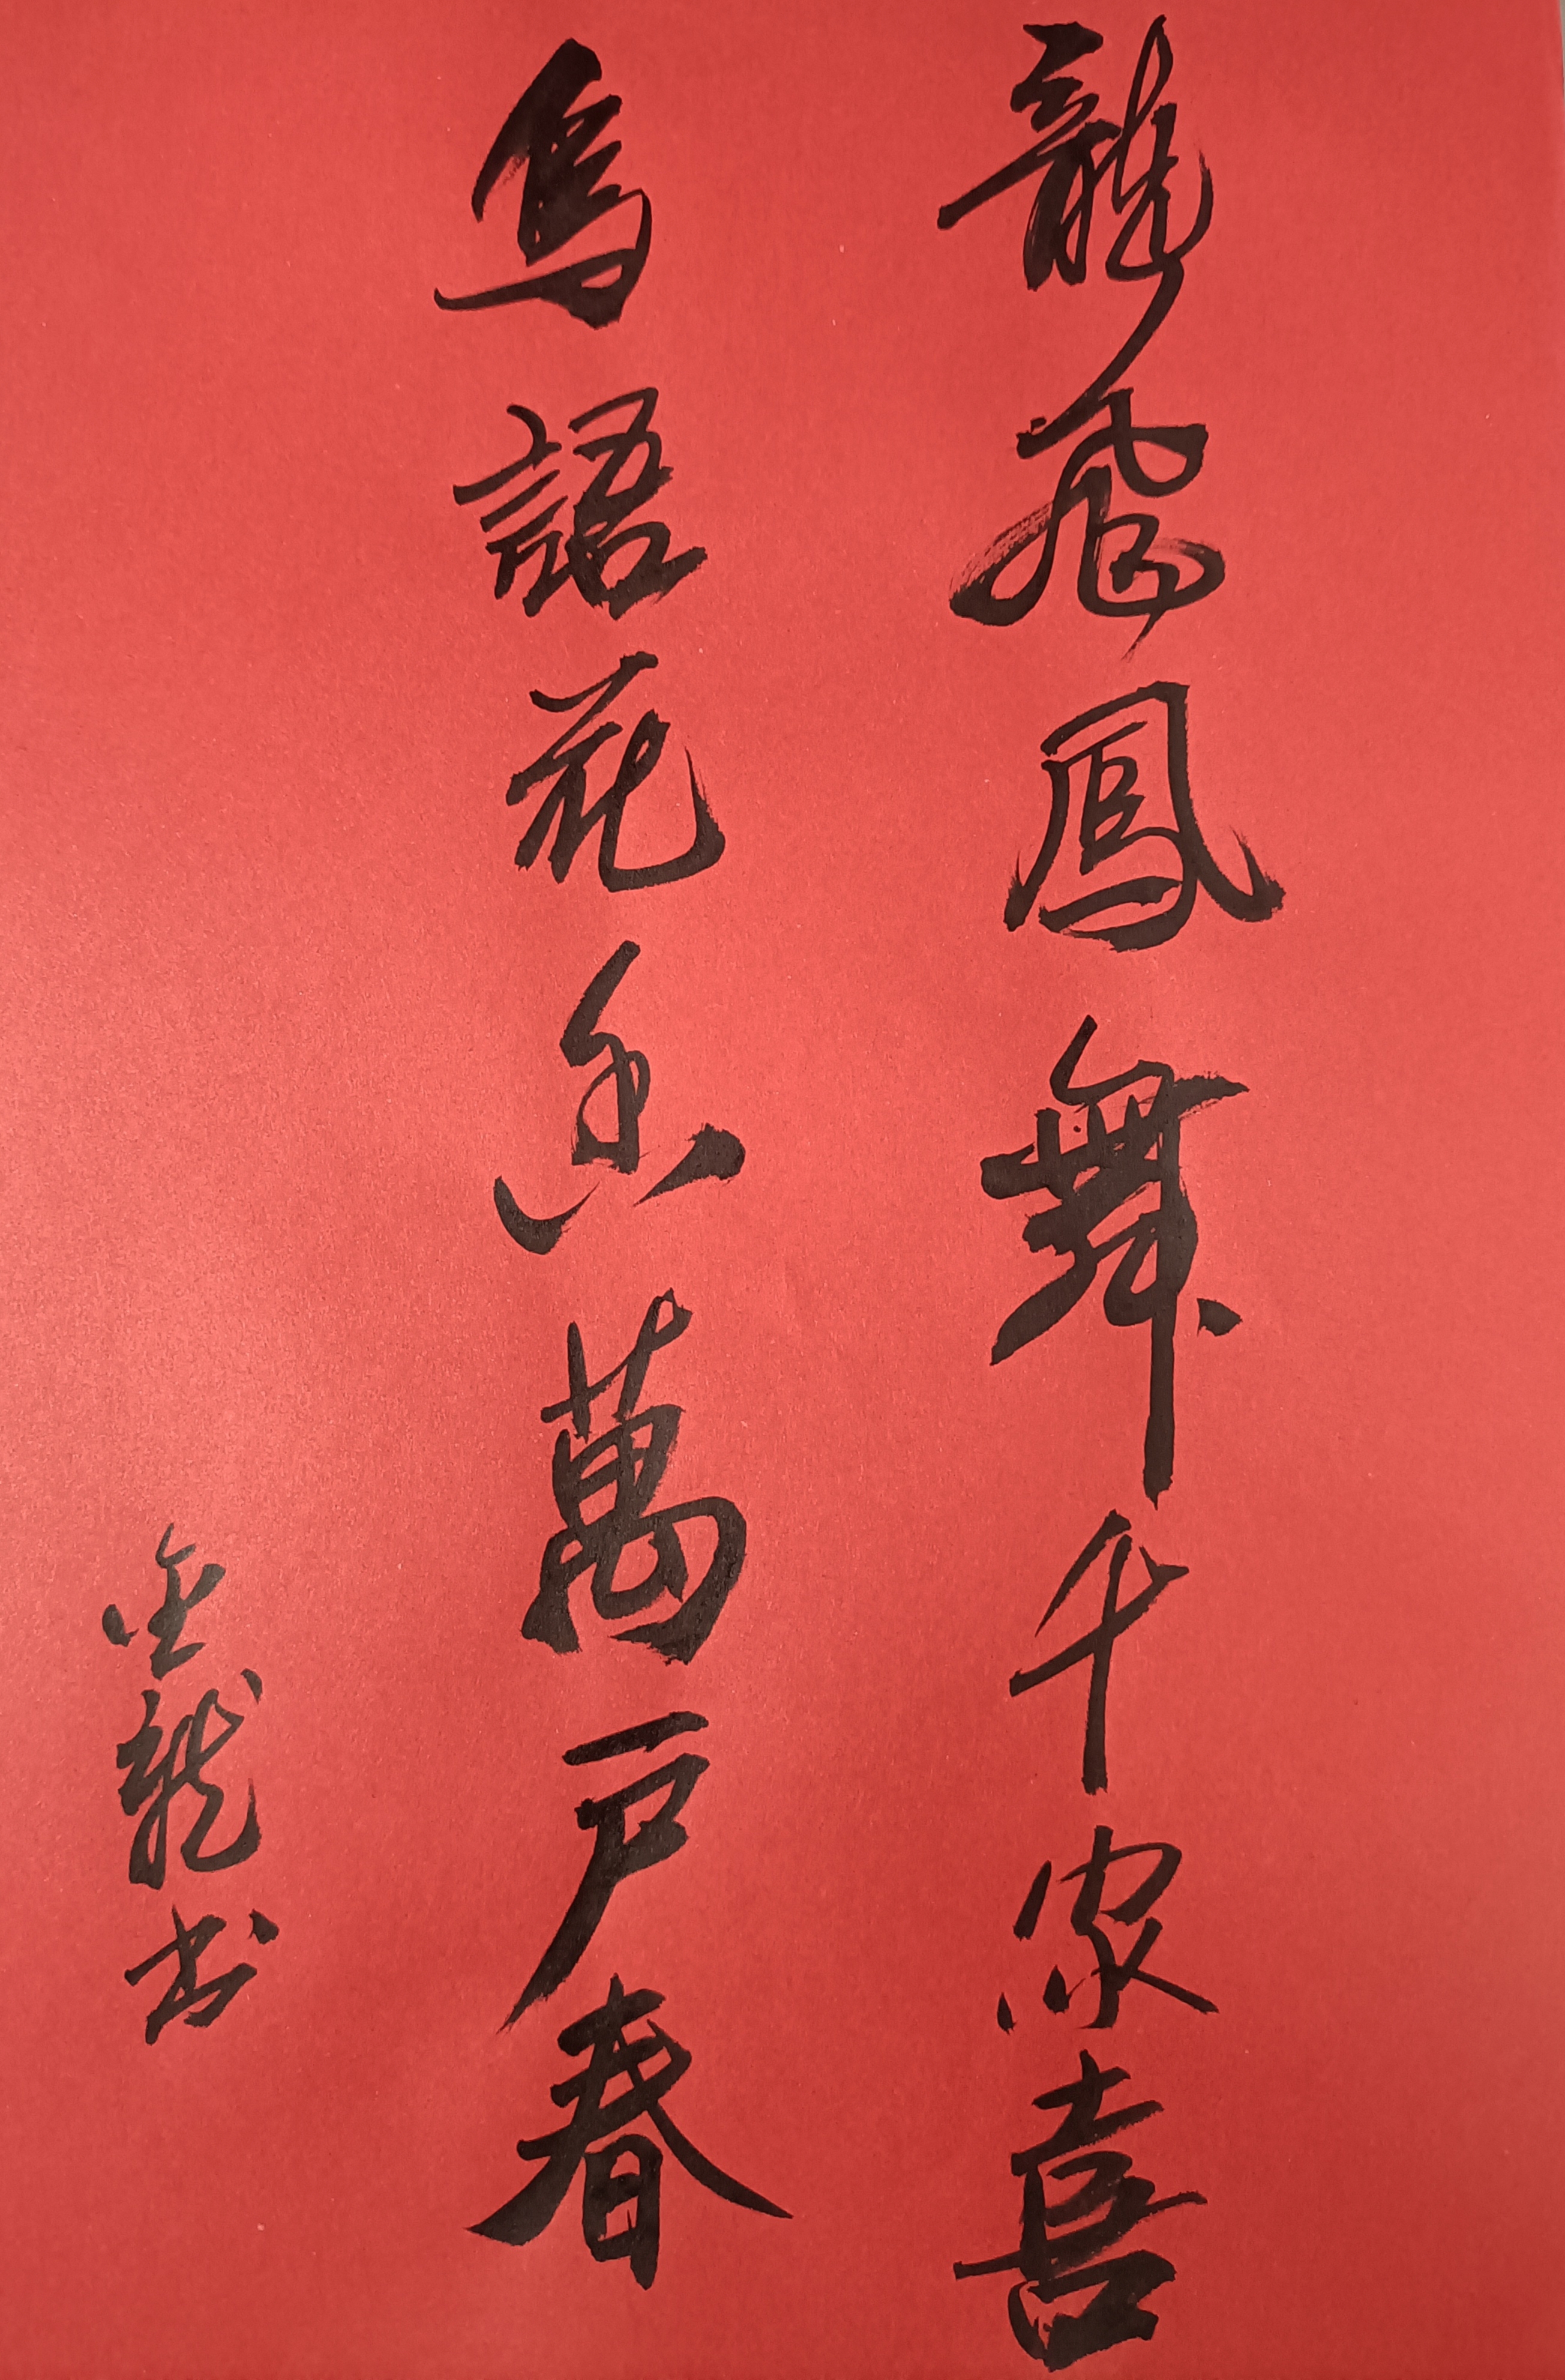 龍飛鳳舞千家喜
鳥語花香萬户春
金龍书